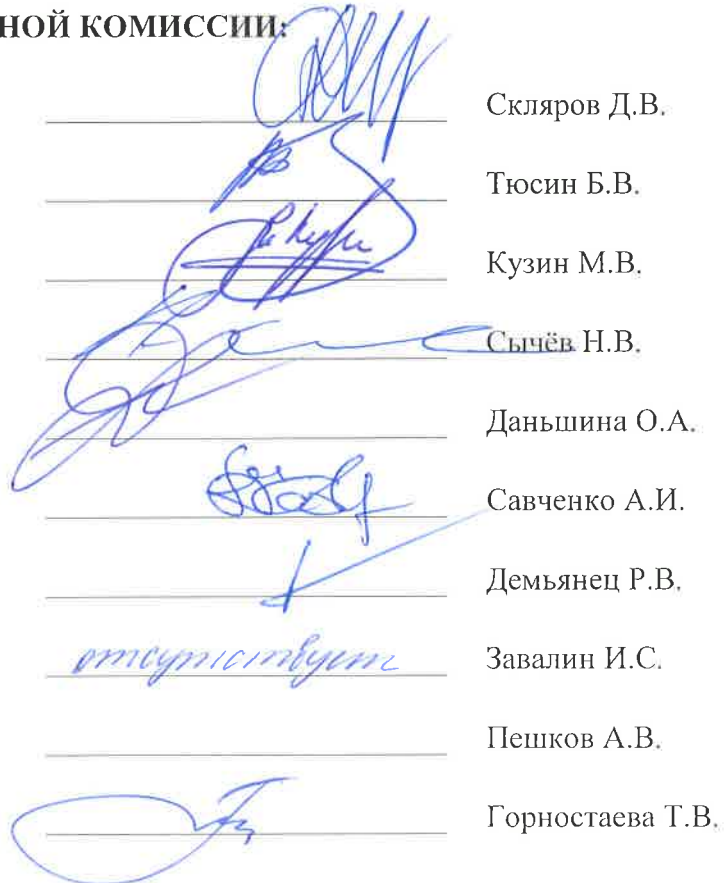 НОЙ КОМИССИИ:
Скляров Д.В.
Тюсин Б.В.
Кузин М.В.
Сычёв Н.В.
Даньшина О.А.
Савченко А.И.
Демьянец Р.В.
отсутствует Завалин И.С.
Пешков А.В.
Горностаева Т.В.